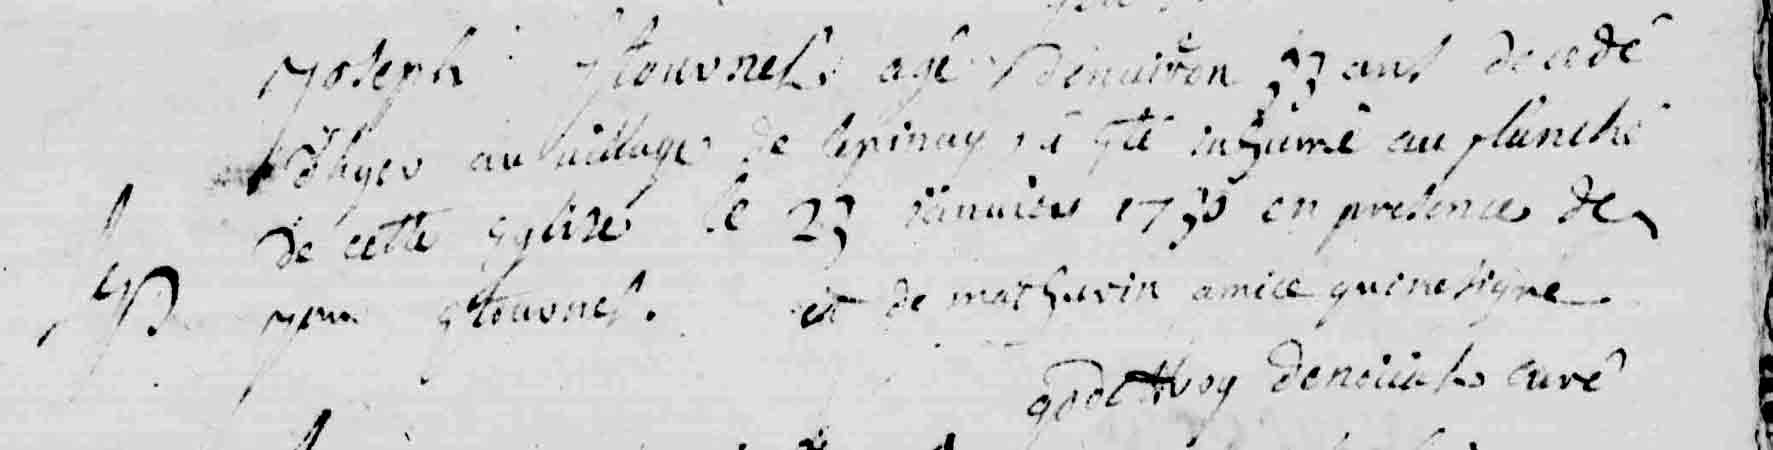 Joseph Etournel agé denuiron 33 ans decedé
d'hyer au uillage de lepinay a esté inhumé au planché
de cette eglise le 23 ianuier 1730 en presence de
jean etournel. et de mathurin amice qui ne signe
godefroy curé